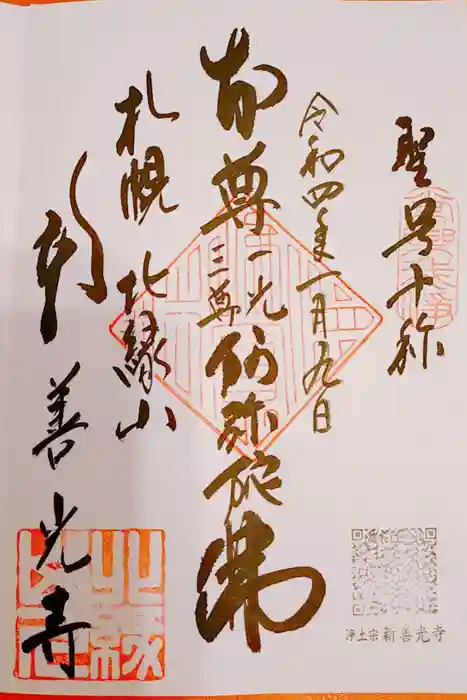 聖号十称
令和四年一月九日
尊 一光三尊 阿弥陀佛
札幌 北縁山
新善光寺
浄土宗新善光寺